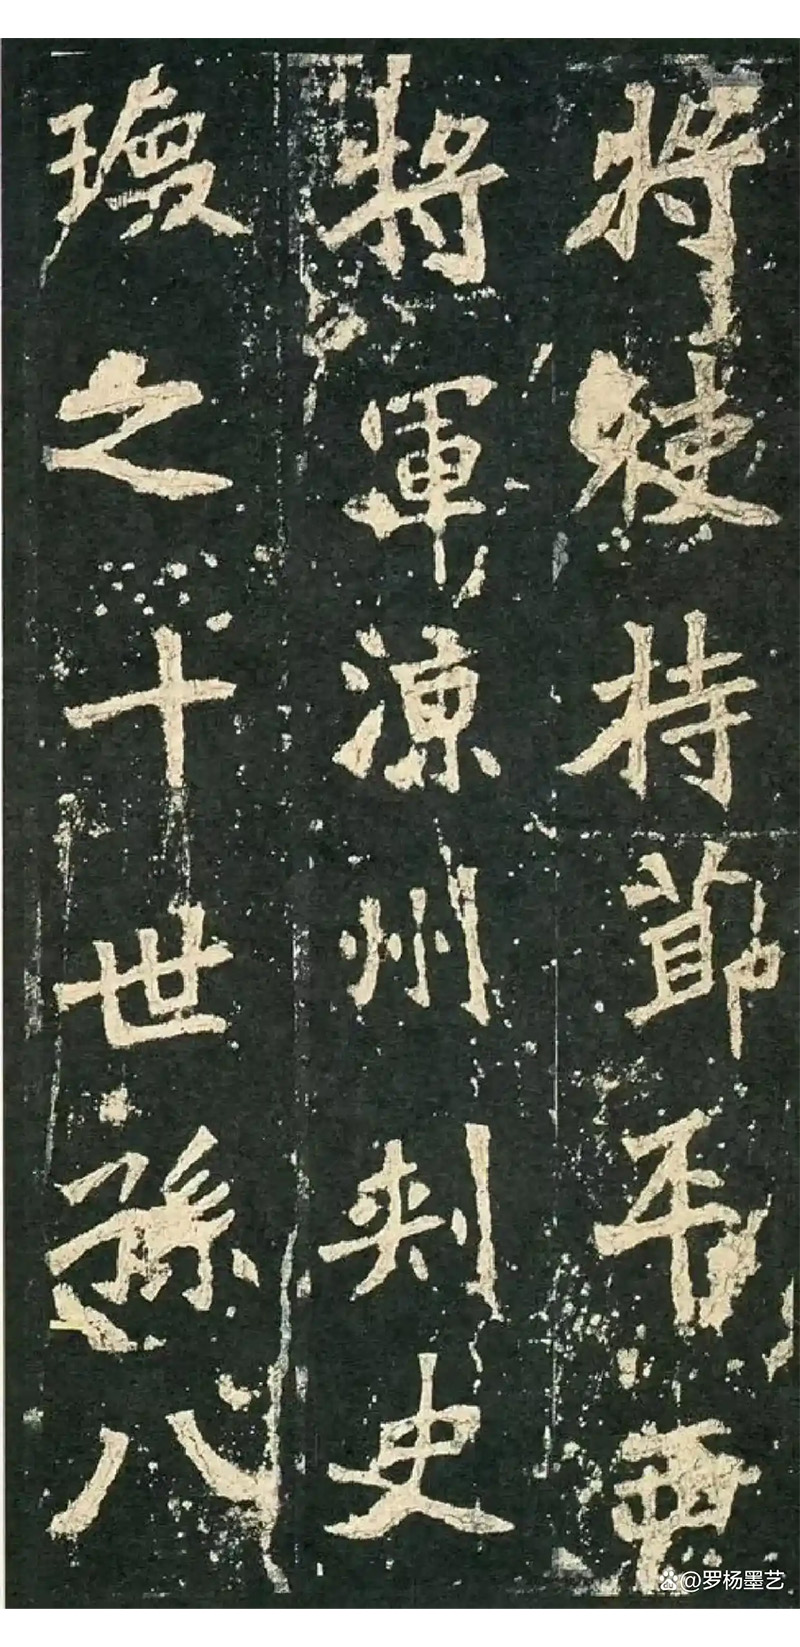 將使持節平西
將軍涼州刺史
瑍之十世孫八
@罗杨墨艺